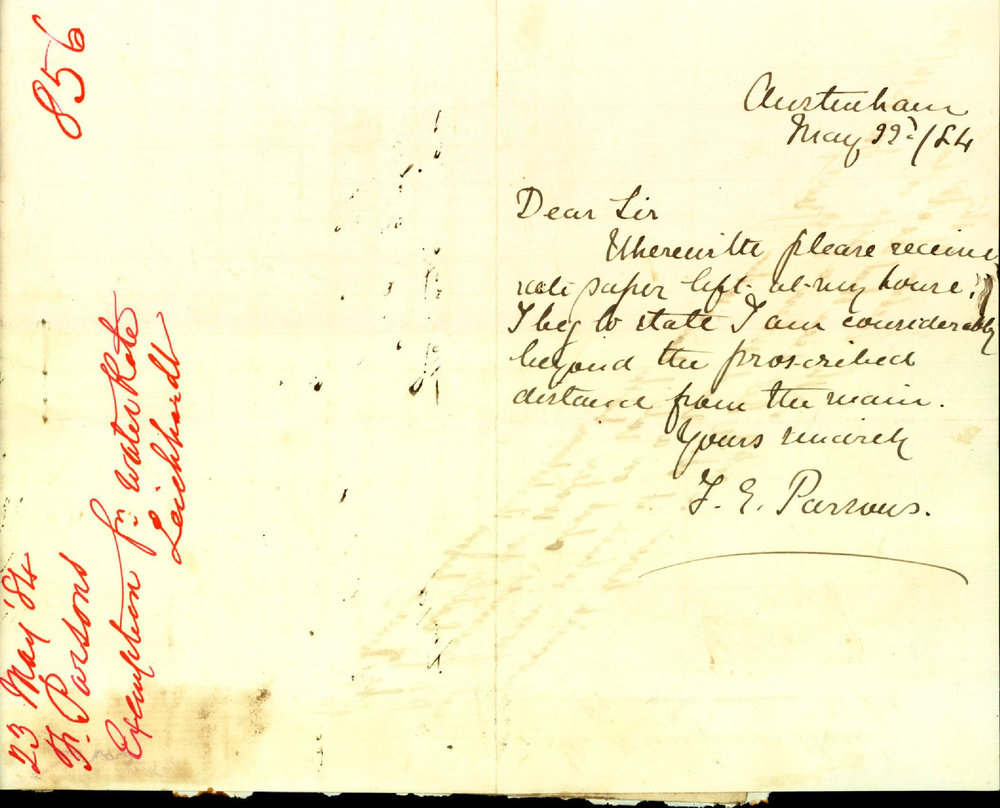 856
23 May '84
F. Parsons
Exemption fm Water Rate
Leichhardt
Austenham
May 22d/84
Dear Sir
Herewith please receive
rate paper left at my house.
I beg to state I am considerably
beyond the proscribed
distance from the main.
Yours sincerely
F. E. Parsons.